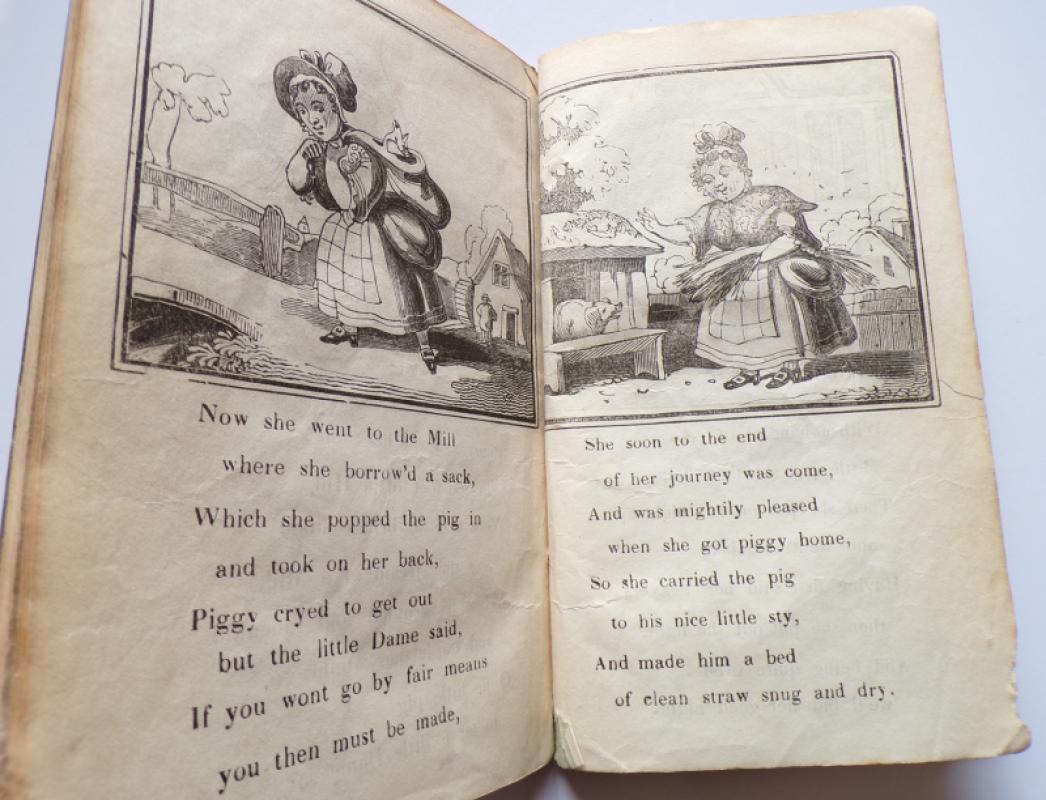 Now she went to the Mill
where she borrow'd a sack,
Which she popped the pig in
and took on her back,
Piggy cryed to get out
but the little Dame said,
If you wont go by fair means
you then must be made,
She soon to the end
of her journey was come,
And was mightily pleased
when she got piggy home,
So she carried the pig
to his nice little sty,
And made him a bed
of clean straw snug and dry.